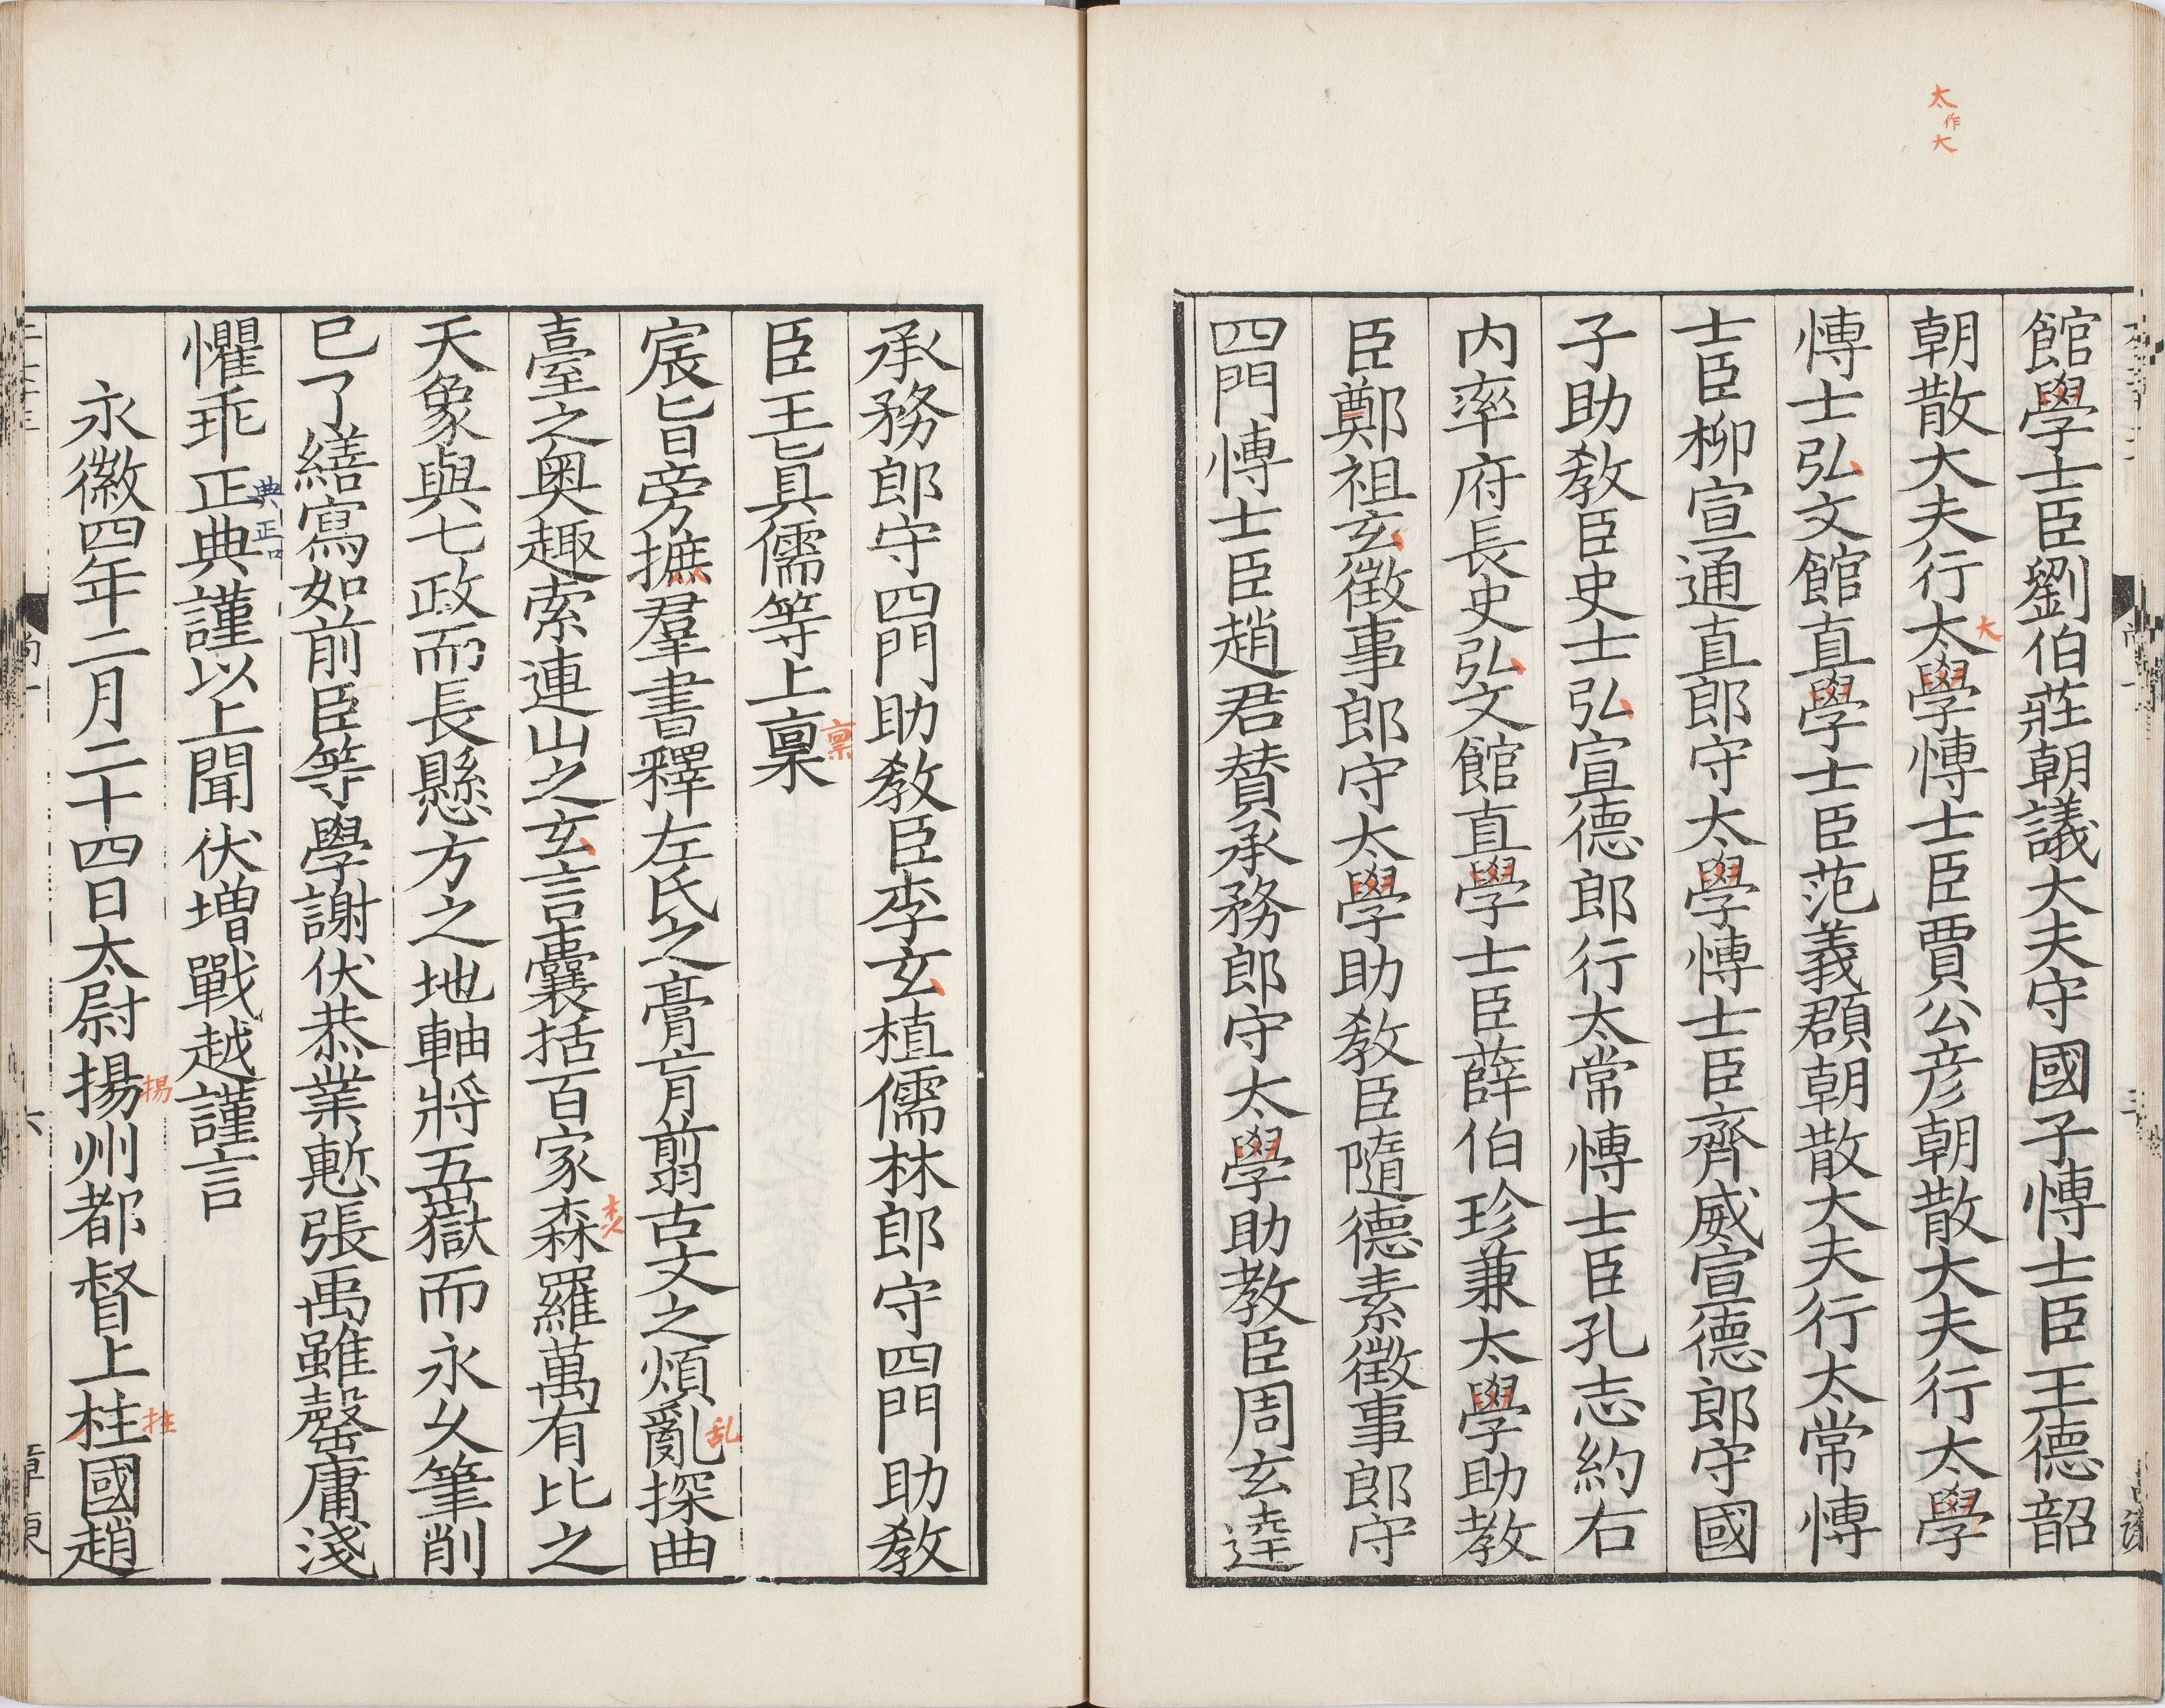 太作大
館學士臣劉伯莊朝議大夫守國子博士臣王德韶
朝散大夫行太學博士臣賈公彦朝散大夫行太學
大
博士弘文館直學士臣范義頵朝散大夫行太常博
士臣柳宣通直郎守太學博士臣齊威宣德郎守國
子助教臣史士弘宣德郎行太常博士臣孔志約右
内率府長史弘文館直學士臣薛伯珍兼太學助教
臣鄭祖玄徵事郎守太學助教臣隨德素徵事郎守
四門博士臣趙君賛承務郎守太學助教臣周玄達
承務郎守四門助教臣李玄植儒林郎守四門助教
臣王眞儒等上稟
稟
宸旨旁摭羣書釋左氏之膏肓翦古文之煩亂探曲
乱
臺之奥趣索連山之玄言囊括百家森羅萬有比之
天象與七政而長懸方之地軸將五嶽而永久筆削
已了繕寫如前臣等學謝伏恭業慙張禹雖罄庸淺
懼乖正典謹以上聞伏増戰越謹言
典正
永徽四年二月二十四日太尉揚州都督上柱國趙
揚
拄